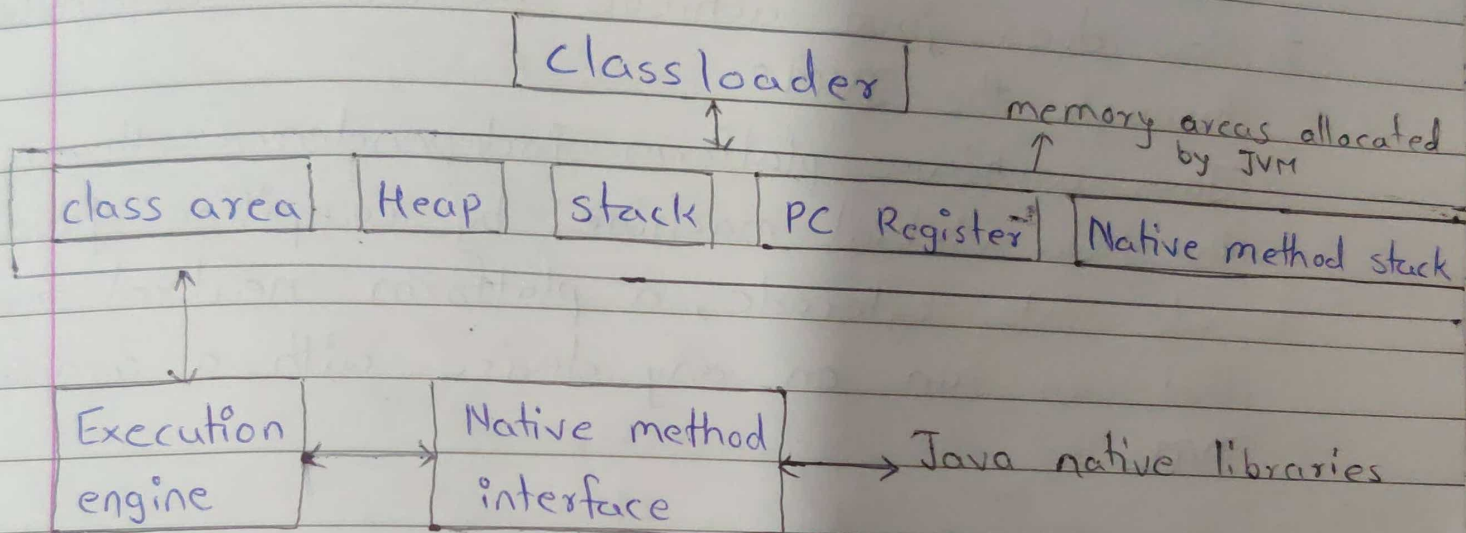 Class loader
memory areas allocated
by JVM
class area Heap stack PC Register Native method stack
Execution
engine
Native method
interface
Java native libraries